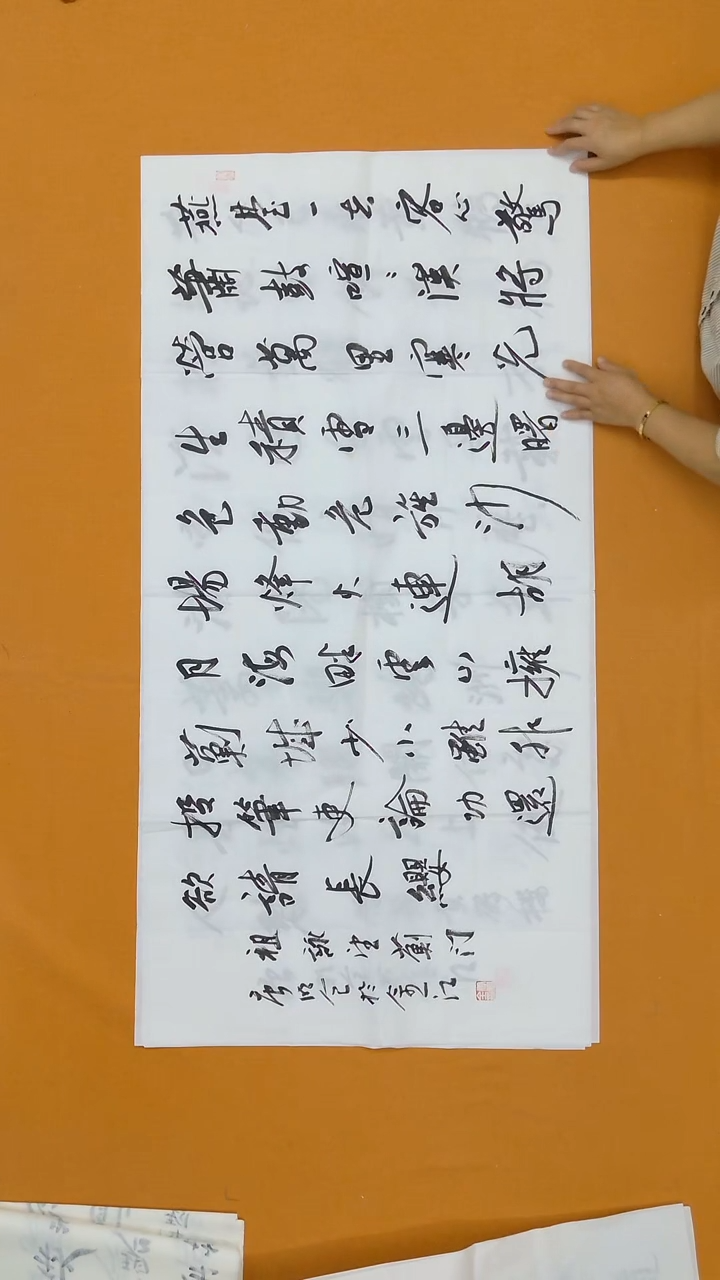 燕臺一去客心驚
簫鼓喧々漢將
營萬里寒光
生積雪三邊曙
色動危旌沙
場烽火連胡
月海畔雲山擁
薊城少小雖非
投筆吏論功還
欲請長纓
祖詠望薊门
於金江